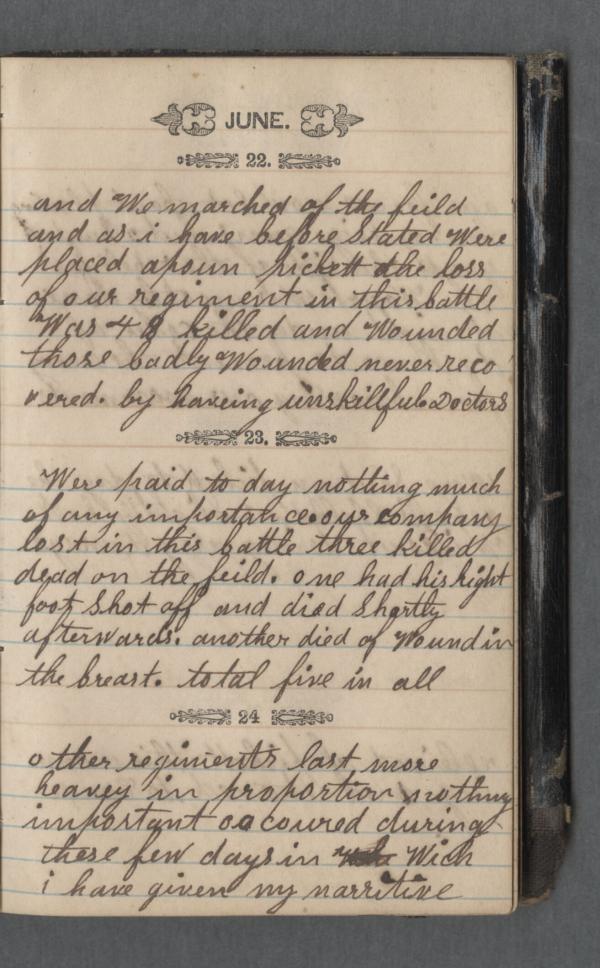 JUNE.
22.
and We marched of the feild
and as i have before Stated Were
placed apoun pickett the loss
of our regiment in this battle
Was 48 killed and Wounded
those badly Wounded never reco
vered. by haveing unskillful Doctors
23.
Were paid to day nothing much
of any importance. our company
lost in this battle three killed
dead on the feild. one had his right
foot Shot off and died Shortly
afterwards. another died of Wound in
the breast. total five in all
24
other regiments last more
heavey in proportion nothing
important occoured during
these few days in Wich
i have given my narritive